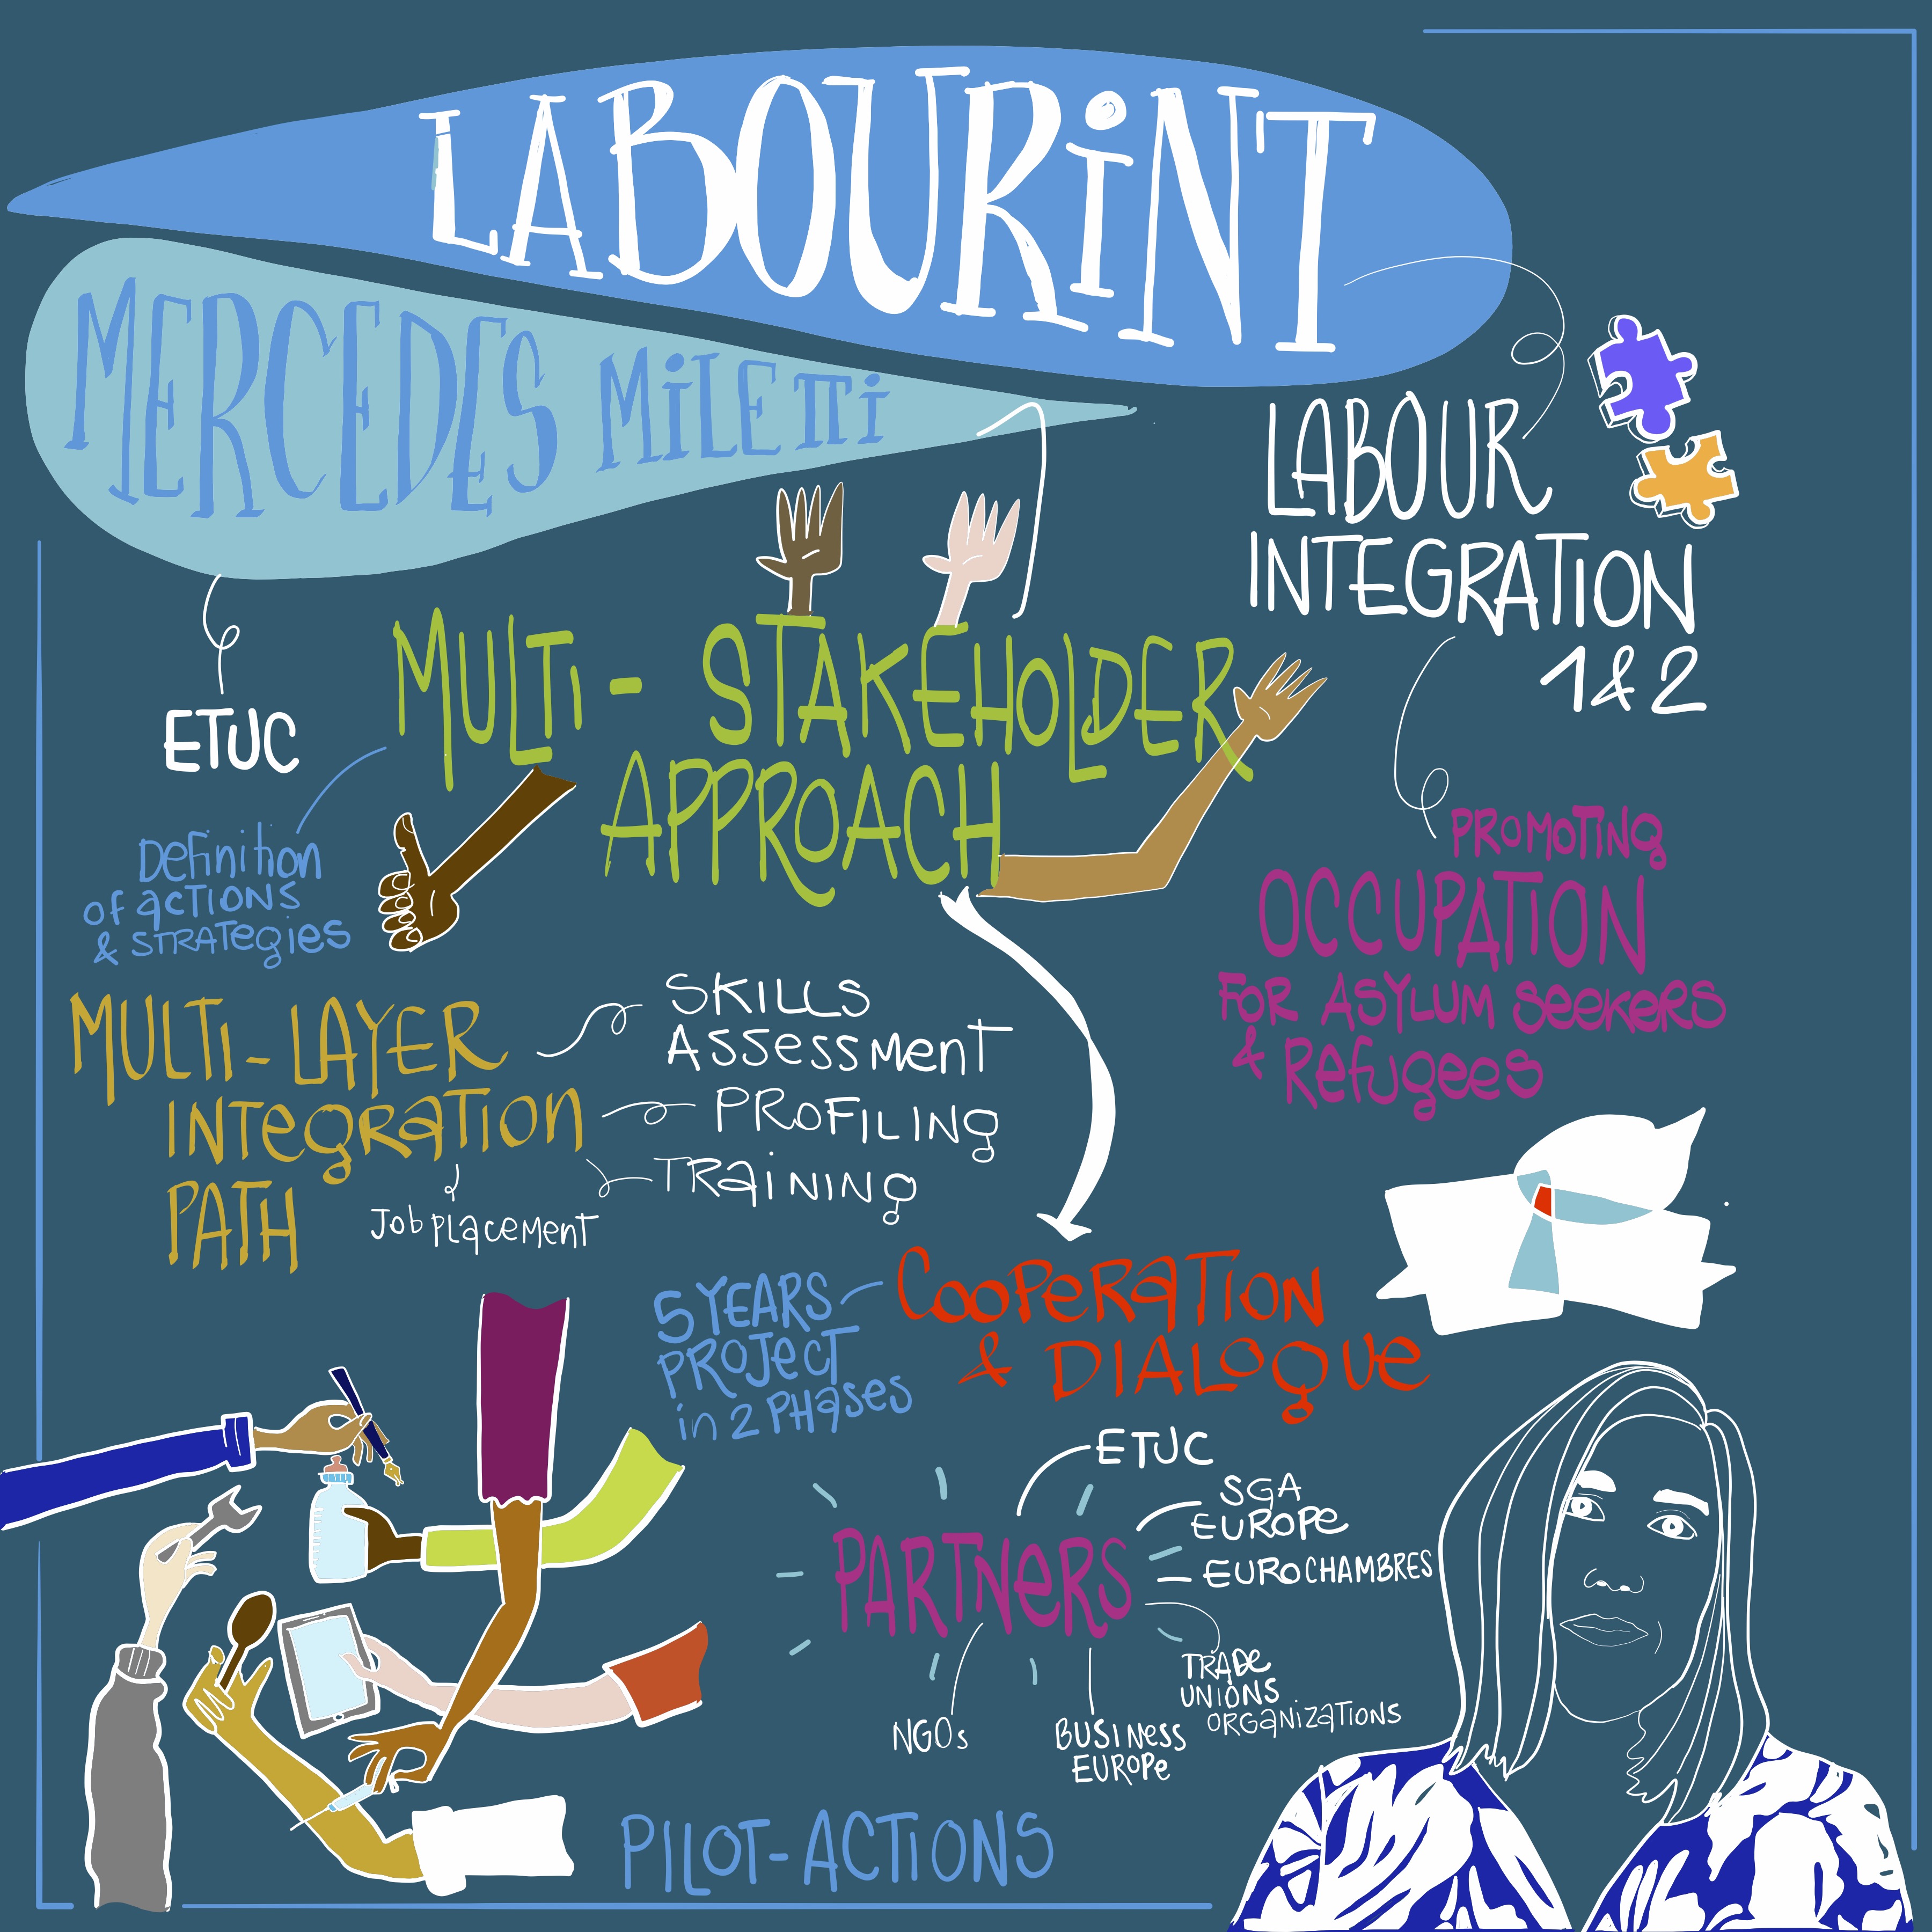 LABOURiNT
MERCEDES MiLETTi
LABOUR
INTEGRATION
1 & 2
ETUC
MULTi - STAKEHOLDER
APPROACH
Definition
of actions
& strategies
PROMOTING
OCCUPATION
FOR ASYLUM SEEKERS
& Refugees
MULTi-LAYER
INTegRATION
PATH
SKILLS
ASSESSMENT
PROFILING
TRAINING
Job placement
5 YEARS
PROJECT
in 2 PHASES
COOPERATION
& DIALOGUE
PARTNERS
ETUC
SGA
EUROPE
EUROCHAMBRES
TRADE
UNIONS
ORGANIZATIONS
BUSINESS
EUROPE
NGOs
PILOT-ACTIONS